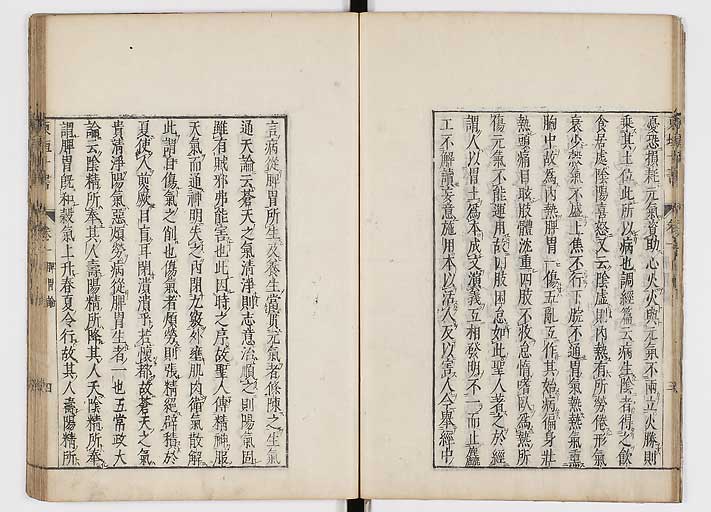 憂恐損耗元氣資助心火火與元氣不兩立火勝則
乘其土位此所以病也調經篇云病生陰者得之飲
食居處陰陽喜怒又云陰虛則內熱有所勞倦形氣
衰少榖氣不盛上焦不行下脘不通胃氣熱熱氣熏
胸中故為內熱脾胃一傷五亂互作其始病徧身壯
熱頭痛目眩肢體沈重四肢不收怠惰嗜臥為熱所
傷元氣不能運用故四肢困怠如此聖人著之於經
謂人以胃土為本成文演義互相發明不一而止麤
工不解讀妄意施用本以活人反以害人今舉經中
言病從脾胃所生及養生當實元氣者條陳之生氣
通天論云蒼天之氣清淨則志意治順之則陽氣固
雖有賊邪弗能害也此因時之序故聖人傳精神服
天氣而通神明失之內閉九竅外壅肌肉衛氣散解
此謂自傷氣之削也傷氣者煩勞則張精絕辟積於
夏使人煎厥目盲耳閉潰潰乎若壞都故蒼天之氣
貴清淨陽氣惡煩勞病從脾胃生者一也五常政大
論云陰精所奉其人壽陽精所降其人夭陰精所奉
謂脾胃既和榖氣上升春夏令行故其人壽陽精所
卷一
脾胃論
四